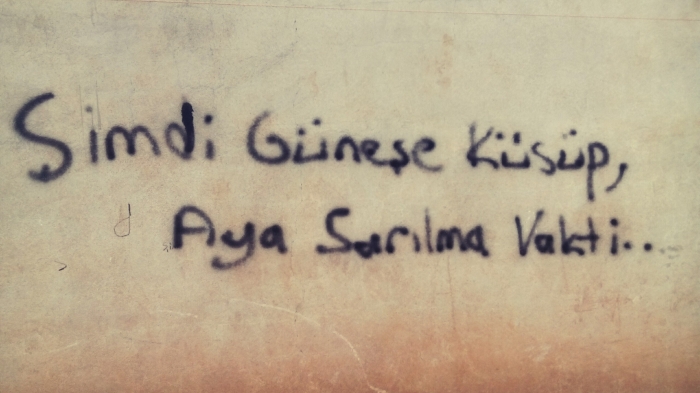 Şimdi Güneşe Küsüp,
Aya Sarılma Vakti..